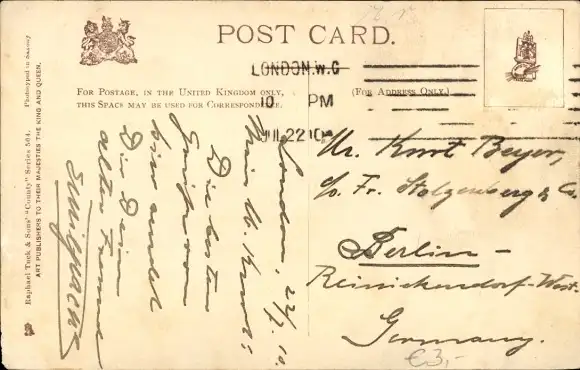 POST CARD.
FOR POSTAGE, IN THE UNITED KINGDOM ONLY,
THIS SPACE MAY BE USED FOR CORRESPONDENCE.
(FOR ADDRESS ONLY.)
LONDON.W.C
10 PM
JUL 22 10
Raphael Tuck & Sons' "County" Series 564. Photogyped in Saxony
ART PUBLISHERS TO THEIR MAJESTIES THE KING AND QUEEN.
London, 22/7.10.
Mein l. Kurt!
Die besten
Grüsse von
hier sendet
Dir Dein
alter Freund
Mr. Kurt Beyer,
c/o. Fr. Stolzenberg & Co.
Berlin -
Reinickendorf-West.
Germany.
€3,-